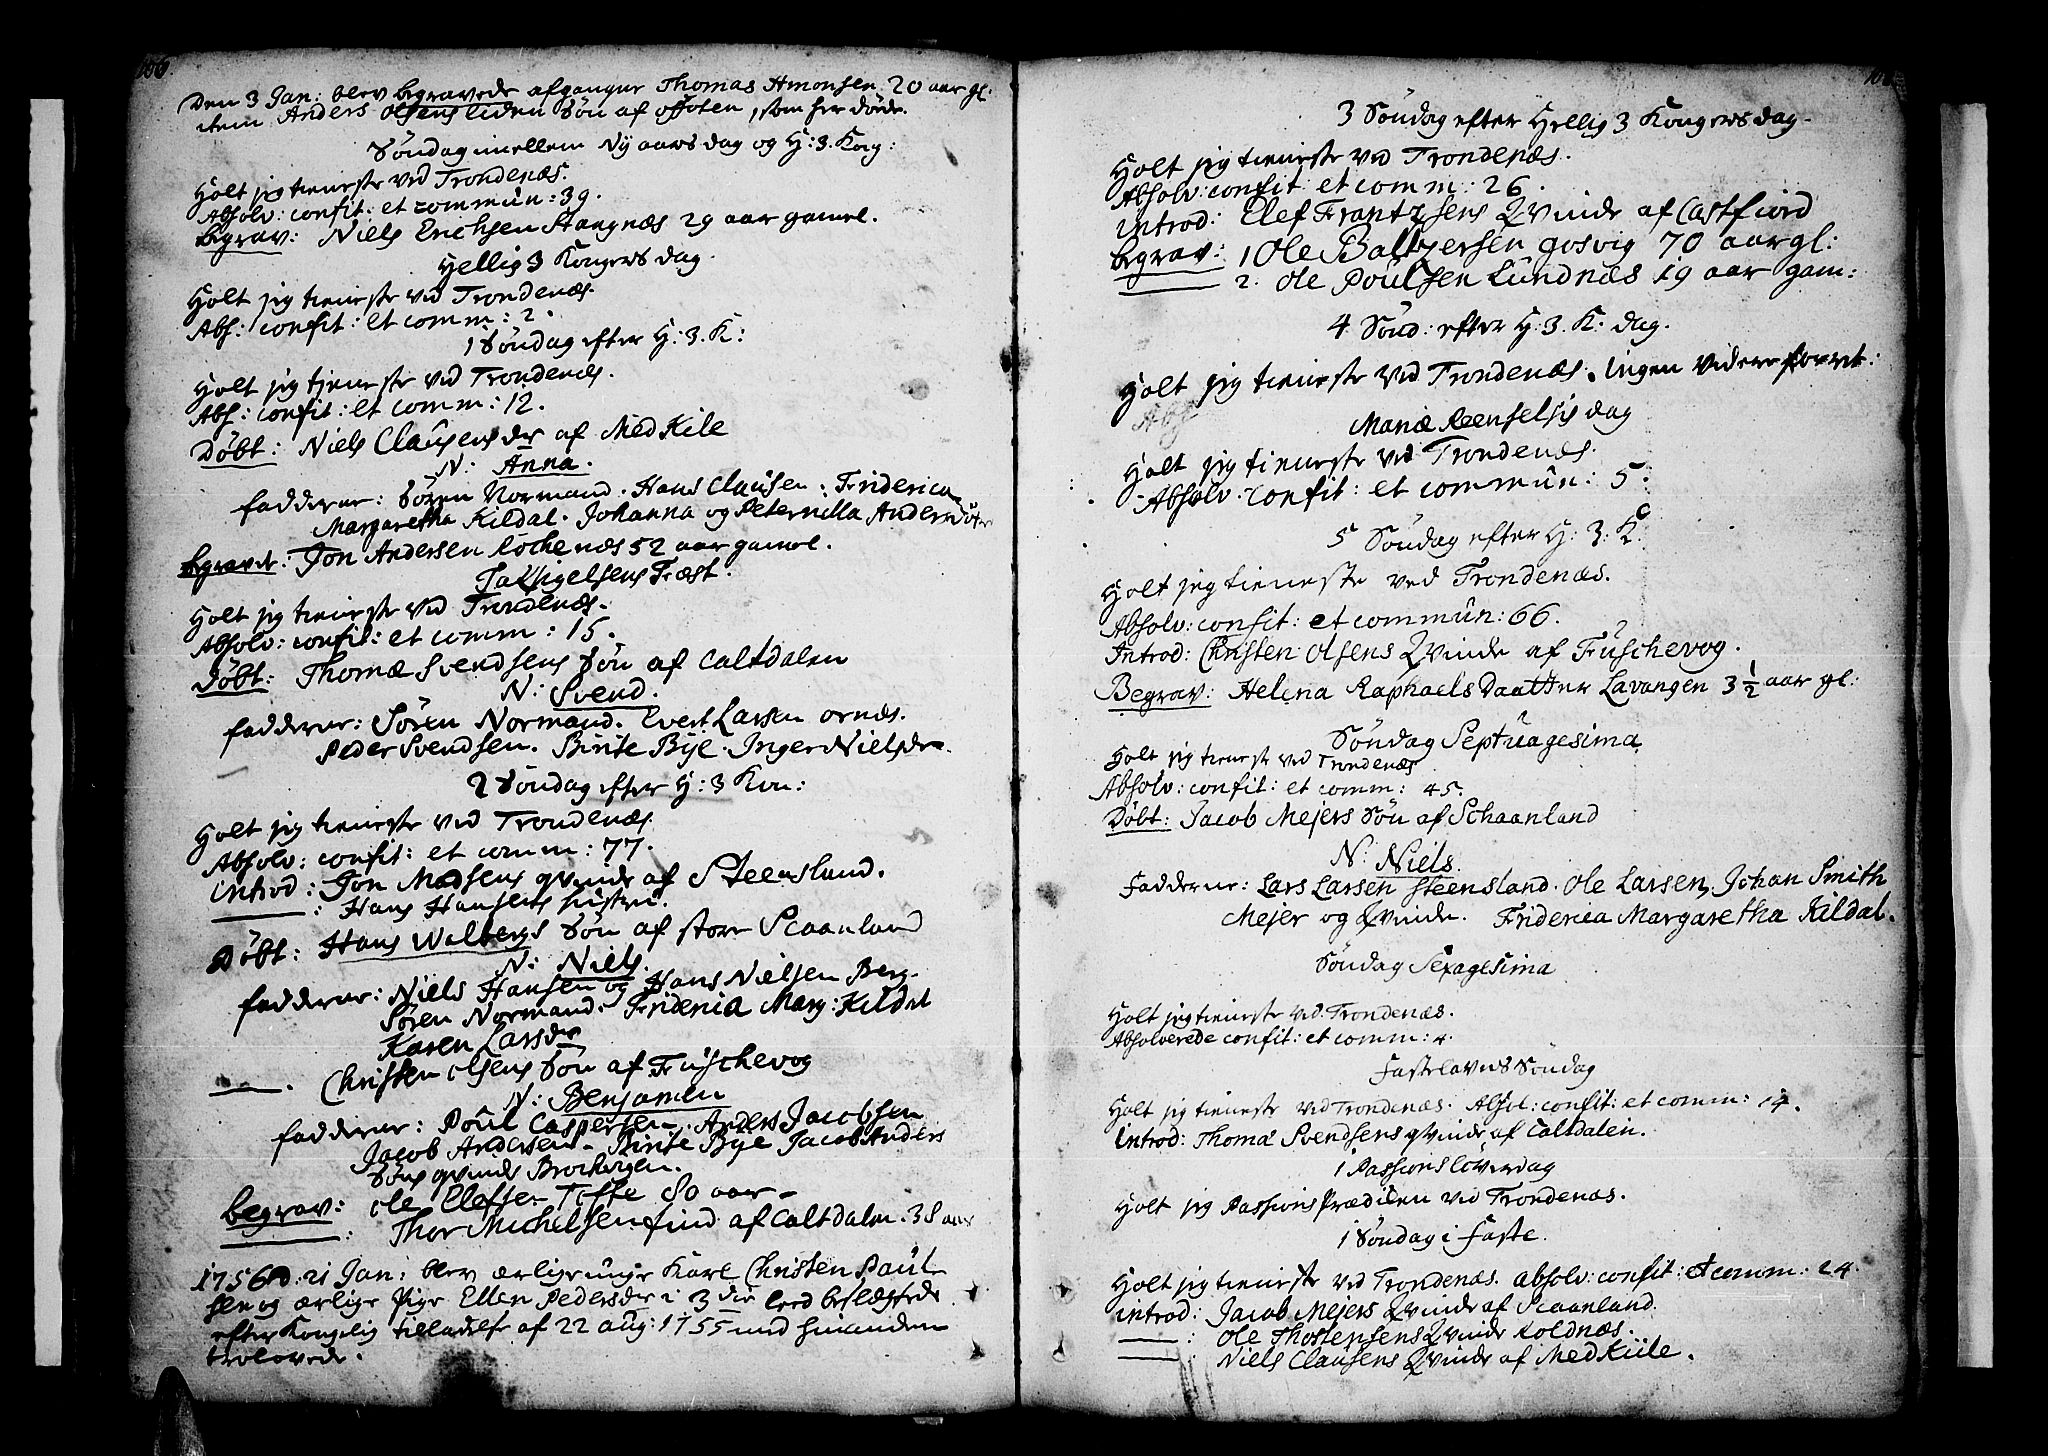 Den 3 Jan: blev begravede afgangne Thomas Amonsen 20 aar gl.
item Anders Olsens liden Søn af offoten, som her døde.
Søndag imellem Ny aars dag og H: 3. Kong:
Holt jeg tieneste ved Trondenæs.
Absolv: confit: et commun: 39.
begrav: Niels Erichsen Stangnæs 29 aar gamel.
Hellig 3 Kongers dag.
Holt jeg tieneste ved Trondenæs.
Abs: confit: et comm: 2.
1 Søndag efter H: 3. K:
Holt jeg tjeneste ved Trondenæs.
Abs: confit: et comm: 12.
Døbt: Niels Clausens dr af MedKile
N: Anna.
fadderne: Søren Normand. Hans Clausen. Friderica
Margaretha Kildal. Johanna og Peternilla Andersdøtr
begravde: Jon Andersen Rochenæs 52 aar gamel.
Taksigelsens Fæst.
Holt jeg tieneste ved Trondenæs.
Absolv: confit: et comm: 15.
Døbt: Thomæ Svendsens Søn af Caltdalen
N: Svend.
fadderne: Søren Normand. Evert Larsen ornæs.
Peder Svendsen. Birite Bye. Inger Nielsdr.
2 Søndag efter H: 3 Kon:
Holt jeg tieneste ved Trondenæs.
Absolv: confit: et comm: 77.
introd: Jon Madsens qvinde af Steensland.
: Hans Hansens hustru.
Døbt: Hans Walbergs Søn af store Scaanland
N: Niels.
fadderne: Niels Hansen og Hans Nielsen Berg.
Søren Normand. Friderica Marg: Kildal
Karen Larsdr
Christen Olsens Søn af Fuschevog
N: Benjamen
fadderne: Poul Caspersen. Anders Jacobsen
Jacob Andersen. Birite Bye Jacob Anders
Søns qvinde Brochergen.
begrav: Ole Elefsen Toffe 80 aar.
: Thor Michelsen find af Caltdalen. 38 aar
1756 d: 21 Jan: blev ærlig unge Karl Christen Paul
sen og ærlige Pige Ellen Pedersdr i 3die leed beslægtede
efter Kongelig tilladelse af 22 aug: 1755 med hinanden
trolovede.
3 Søndag efter Hellig 3 Kongers dag.
Holt jeg tieneste ved Trondenæs.
Absolv: confit et comm: 26.
introd: Elef Frantzsens Qvinde af Castfiord
begrav: 1 Ole Baltzersen gosvig 70 aar gl:
2. Ole Poulsen Lundnæs 19 aar gam:
4 Sønd: efter H: 3. K: dag.
Holt jeg tieneste ved Trondenæs. Ingen videre forret:
Mariæ Reenselsis dag
Holt jeg tieneste ved Trondenæs.
Absolv. confit: et commun: 5.
5 Søndag efter H: 3. K.
Holt jeg tieneste ved Trondenæs.
Absolv: confit: et commun: 66.
Introd: Christen Olsens Qvinde af Fuschevog.
Begrav: Helena Raphaels Daatter Lavangen 3 1/2 aar gl:
Søndag Septuagesima
Holt jeg tieneste ved Trondenæs
Absolv: confit: et comm: 45.
Døbt: Jacob Mejers Søn af Schaanland
N: Niels.
Fadderne: Lars Larsen Steensland. Ole Larsen, Johan Smith
Mejer og Qvinde. Friderica Margaretha Kildal.
Søndag Sexagesima
Holt jeg tieneste ved Trondenæs.
Absolverede confit: et comm: 4.
Fastelavns Søndag
Holt jeg tieneste ved Trondenæs. Absol: confit: et comm: 14.
introd: Thomas Svendsens qvinde af Caltdalen.
1 Passions Løverdag
Holt jeg Passions Prædiken ved Trondenæs.
1 Søndag i Faste.
Holt jeg tieneste ved Trondenæs. absolv: confit: et comm: 24.
introd: Jacob Mejers Qvinde af Scaanland.
: Ole Thostensens Qvinde Koldnæs.
: Niels Clausens Qvinde af MedKiile.